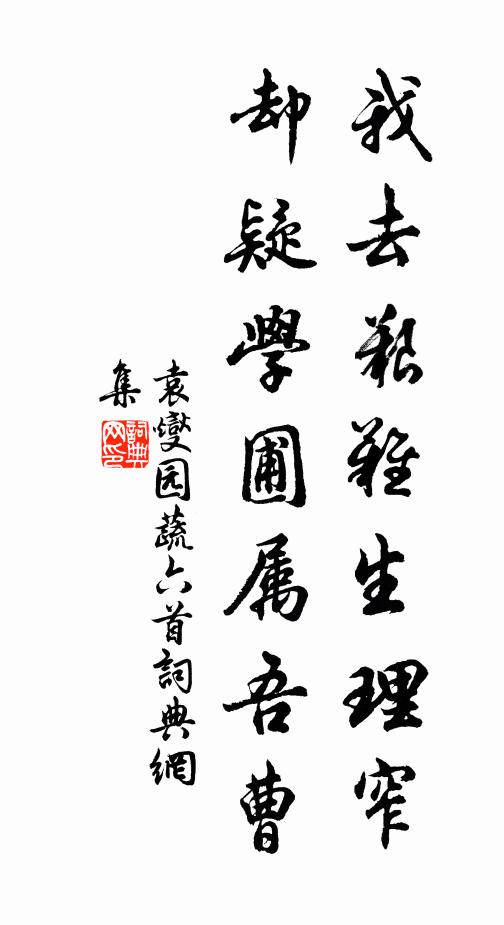 我去艱難生理窄
却疑學圃属吾曹
袁燮园蔬六首詞典網
集
詞典
网印